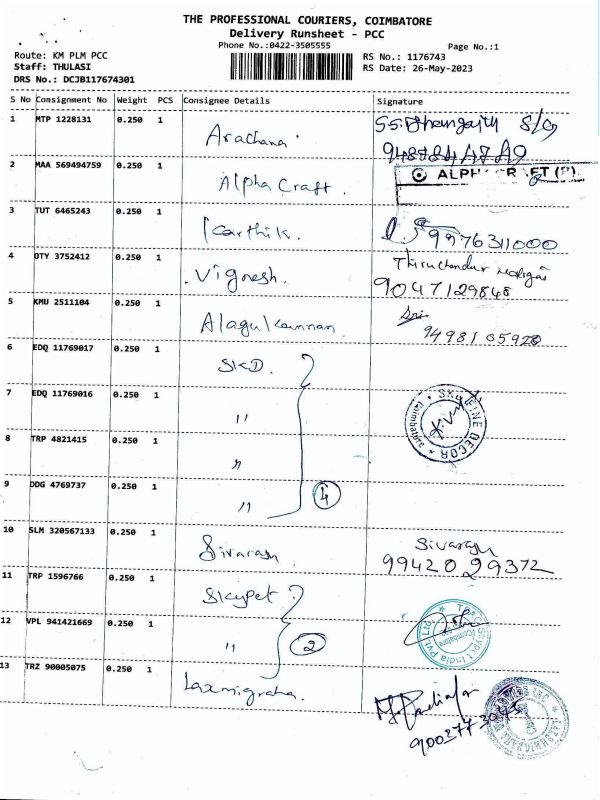 THE PROFESSIONAL COURIERS, COIMBATORE
Delivery Runsheet - PCC
Phone No.:0422-3505555
Page No.:1
Route: KM PLM PCC
Staff: THULASI
DRS No.: DCJB117674301
RS No.: 1176743
RS Date: 26-May-2023
S No Consignment No Weight PCS Consignee Details Signature
1 MTP 1228131 0.250 1 Arachana
2 MAA 569494759 0.250 1 Alpha Craft.
3 TUT 6465243 0.250 1 Karthik. 9976311000
4 OTY 3752412 0.250 1 Vignesh. Thiruchendur
9047129848
5 KMU 2511104 0.250 1 Alagu Kannan Sri
94981 05920
6 EDQ 11769017 0.250 1 SKD.
7 EDQ 11769016 0.250 1 "
8 TRP 4821415 0.250 1 "
9 DDG 4769737 0.250 1 " 4
SKY FINE DECOR
Coimbatore
10 SLM 320567133 0.250 1 Sivaram Sivaram
99420 29372
11 TRP 1596766 0.250 1 Skypet
12 VPL 941421669 0.250 1 " 2
India Pvt. Ltd.
13 TRZ 90005075 0.250 1 Laxmigraha.
9003773045